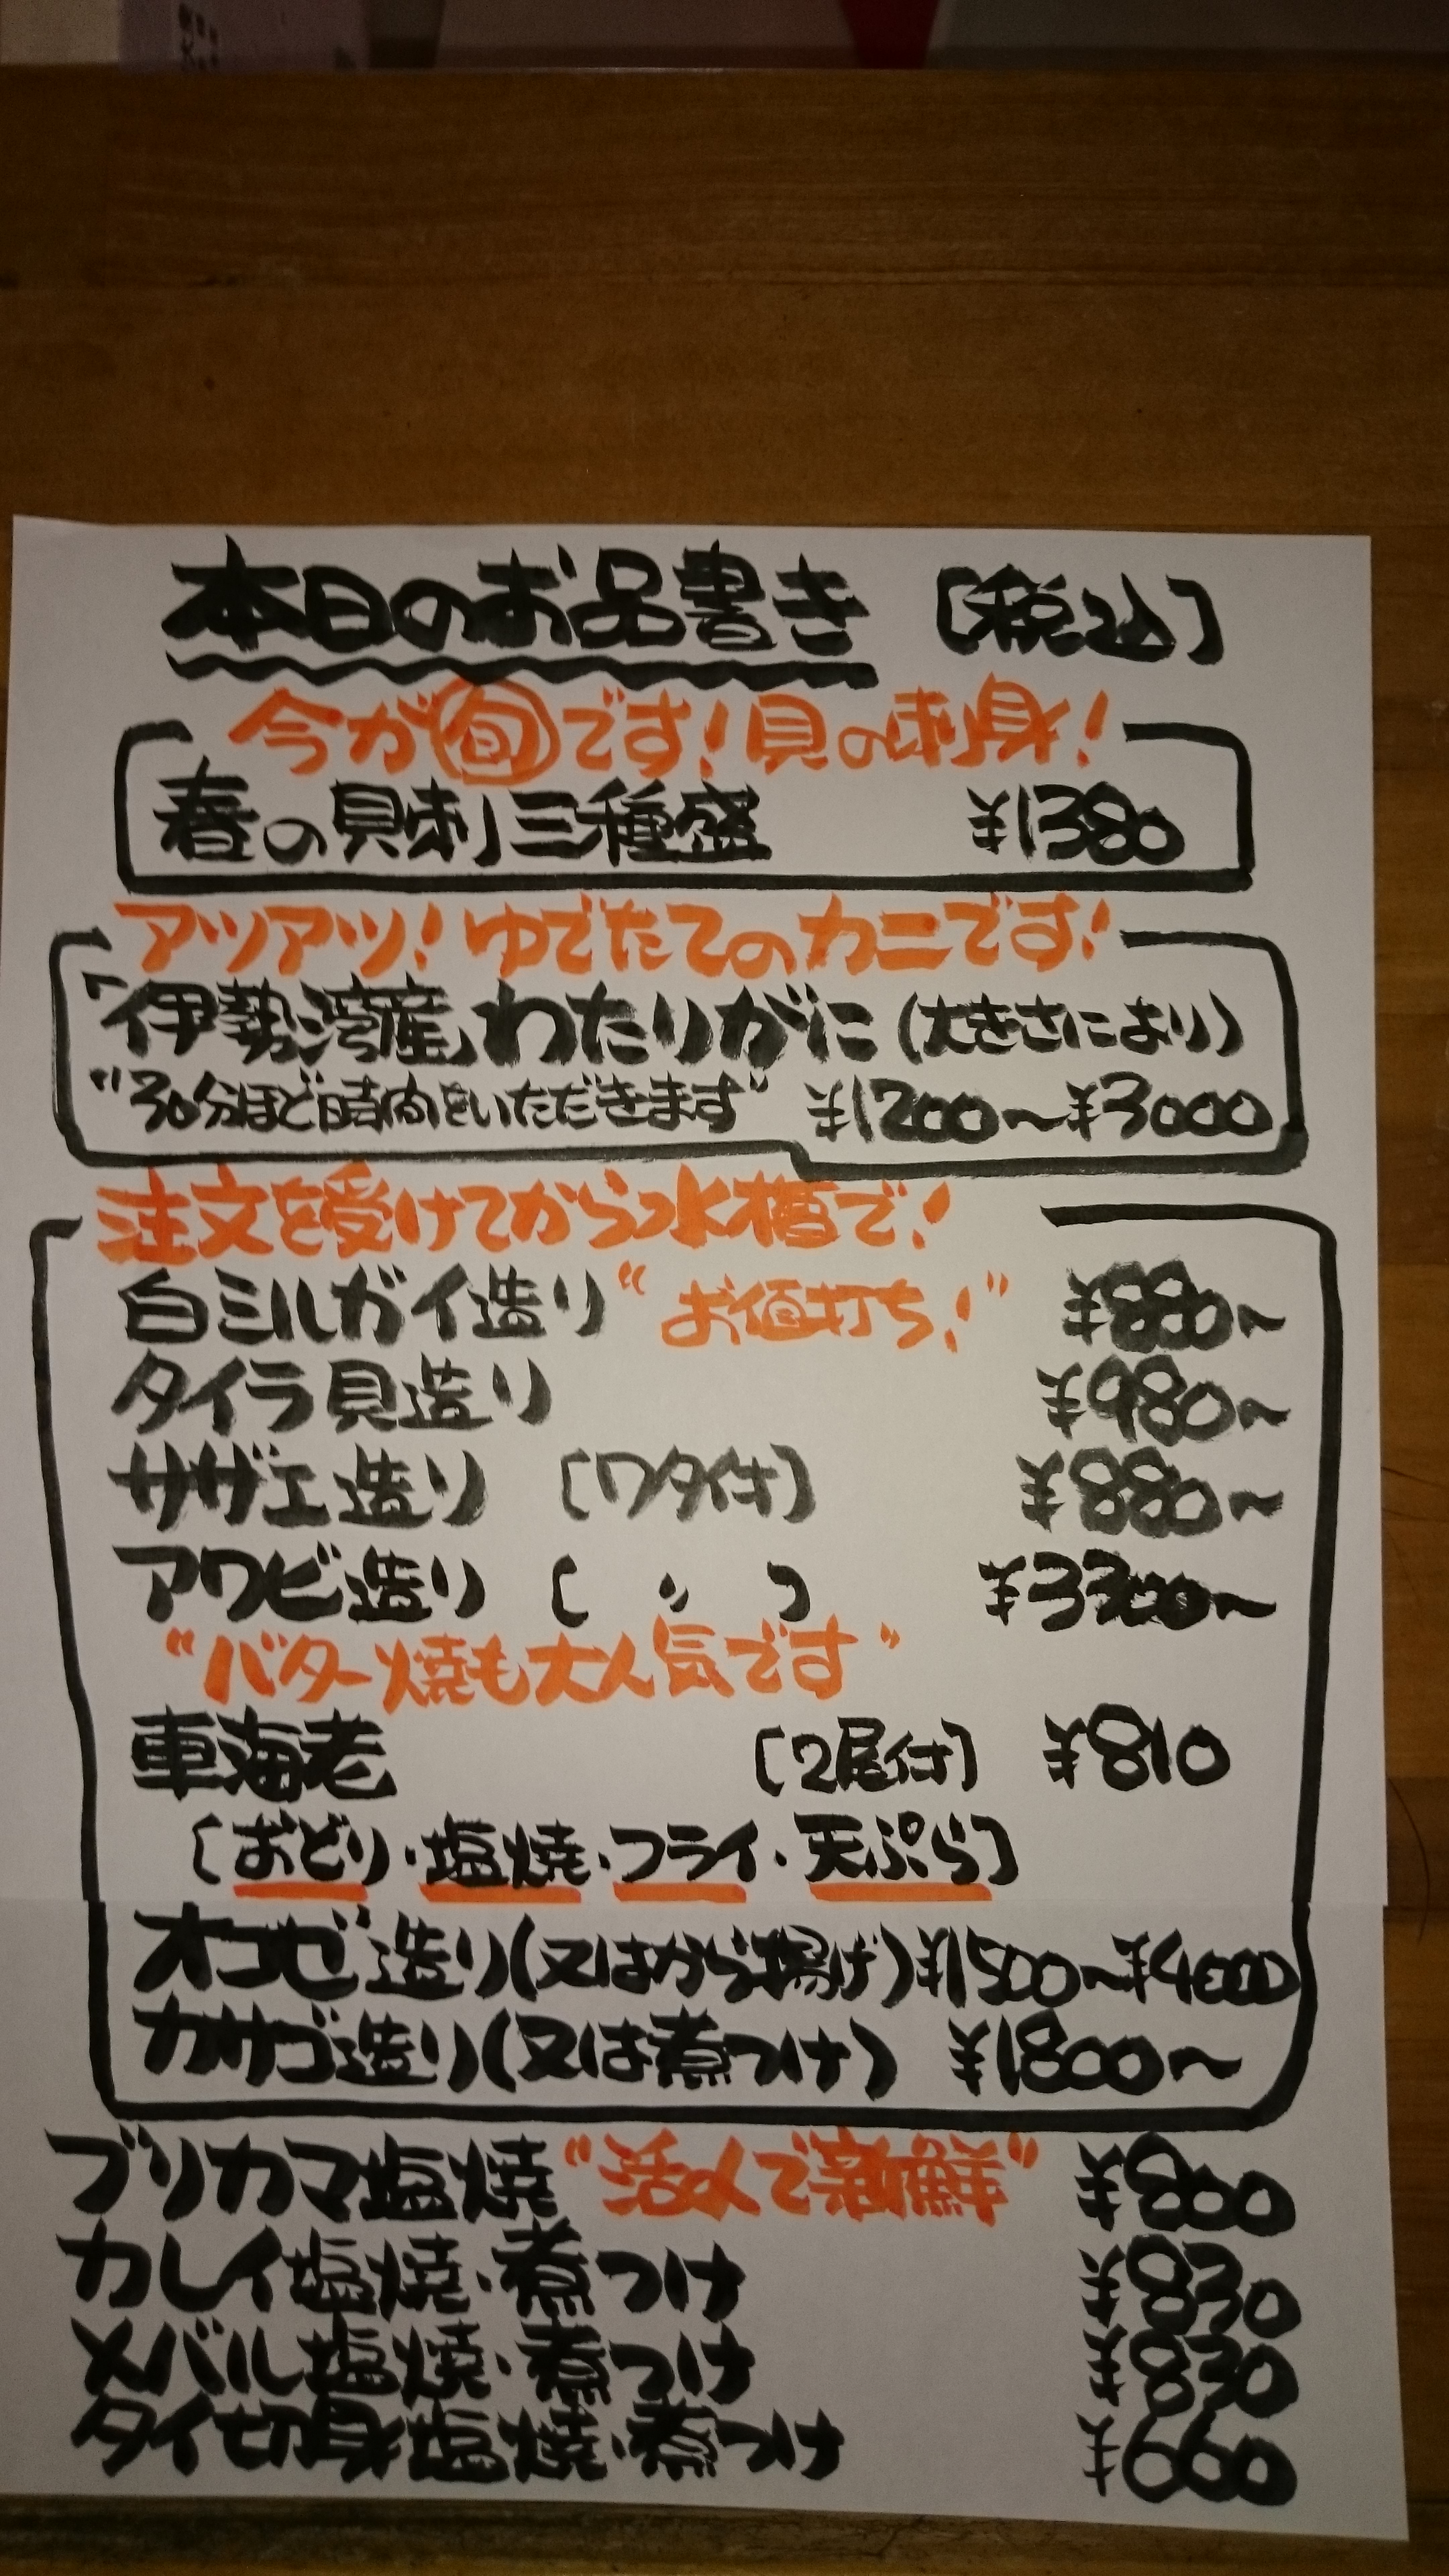 本日のお品書き [税込]
今が旬です!貝の刺身!
春の貝刺三種盛 ¥1380
アツアツ!ゆでたてのカニです!
「伊勢湾産」わたりがに(大きさにより)
"30分ほど時間をいただきます" ¥1200~¥3000
注文を受けてから水槽で!
白ミルガイ造り"お値打ち!" ¥880~
タイラ貝造り ¥980~
サザエ造り [ワタ付] ¥880~
アワビ造り [〃] ¥3300~
"バター焼も大人気です"
車海老 [2尾付] ¥810
[おどり・塩焼・フライ・天ぷら]
オコゼ造り(又はから揚げ)¥1500~¥4000
カサゴ造り(又は煮つけ) ¥1800~
ブリカマ塩焼"活〆で新鮮" ¥800
カレイ塩焼・煮つけ ¥830
メバル塩焼・煮つけ ¥830
タイ切身塩焼・煮つけ ¥660